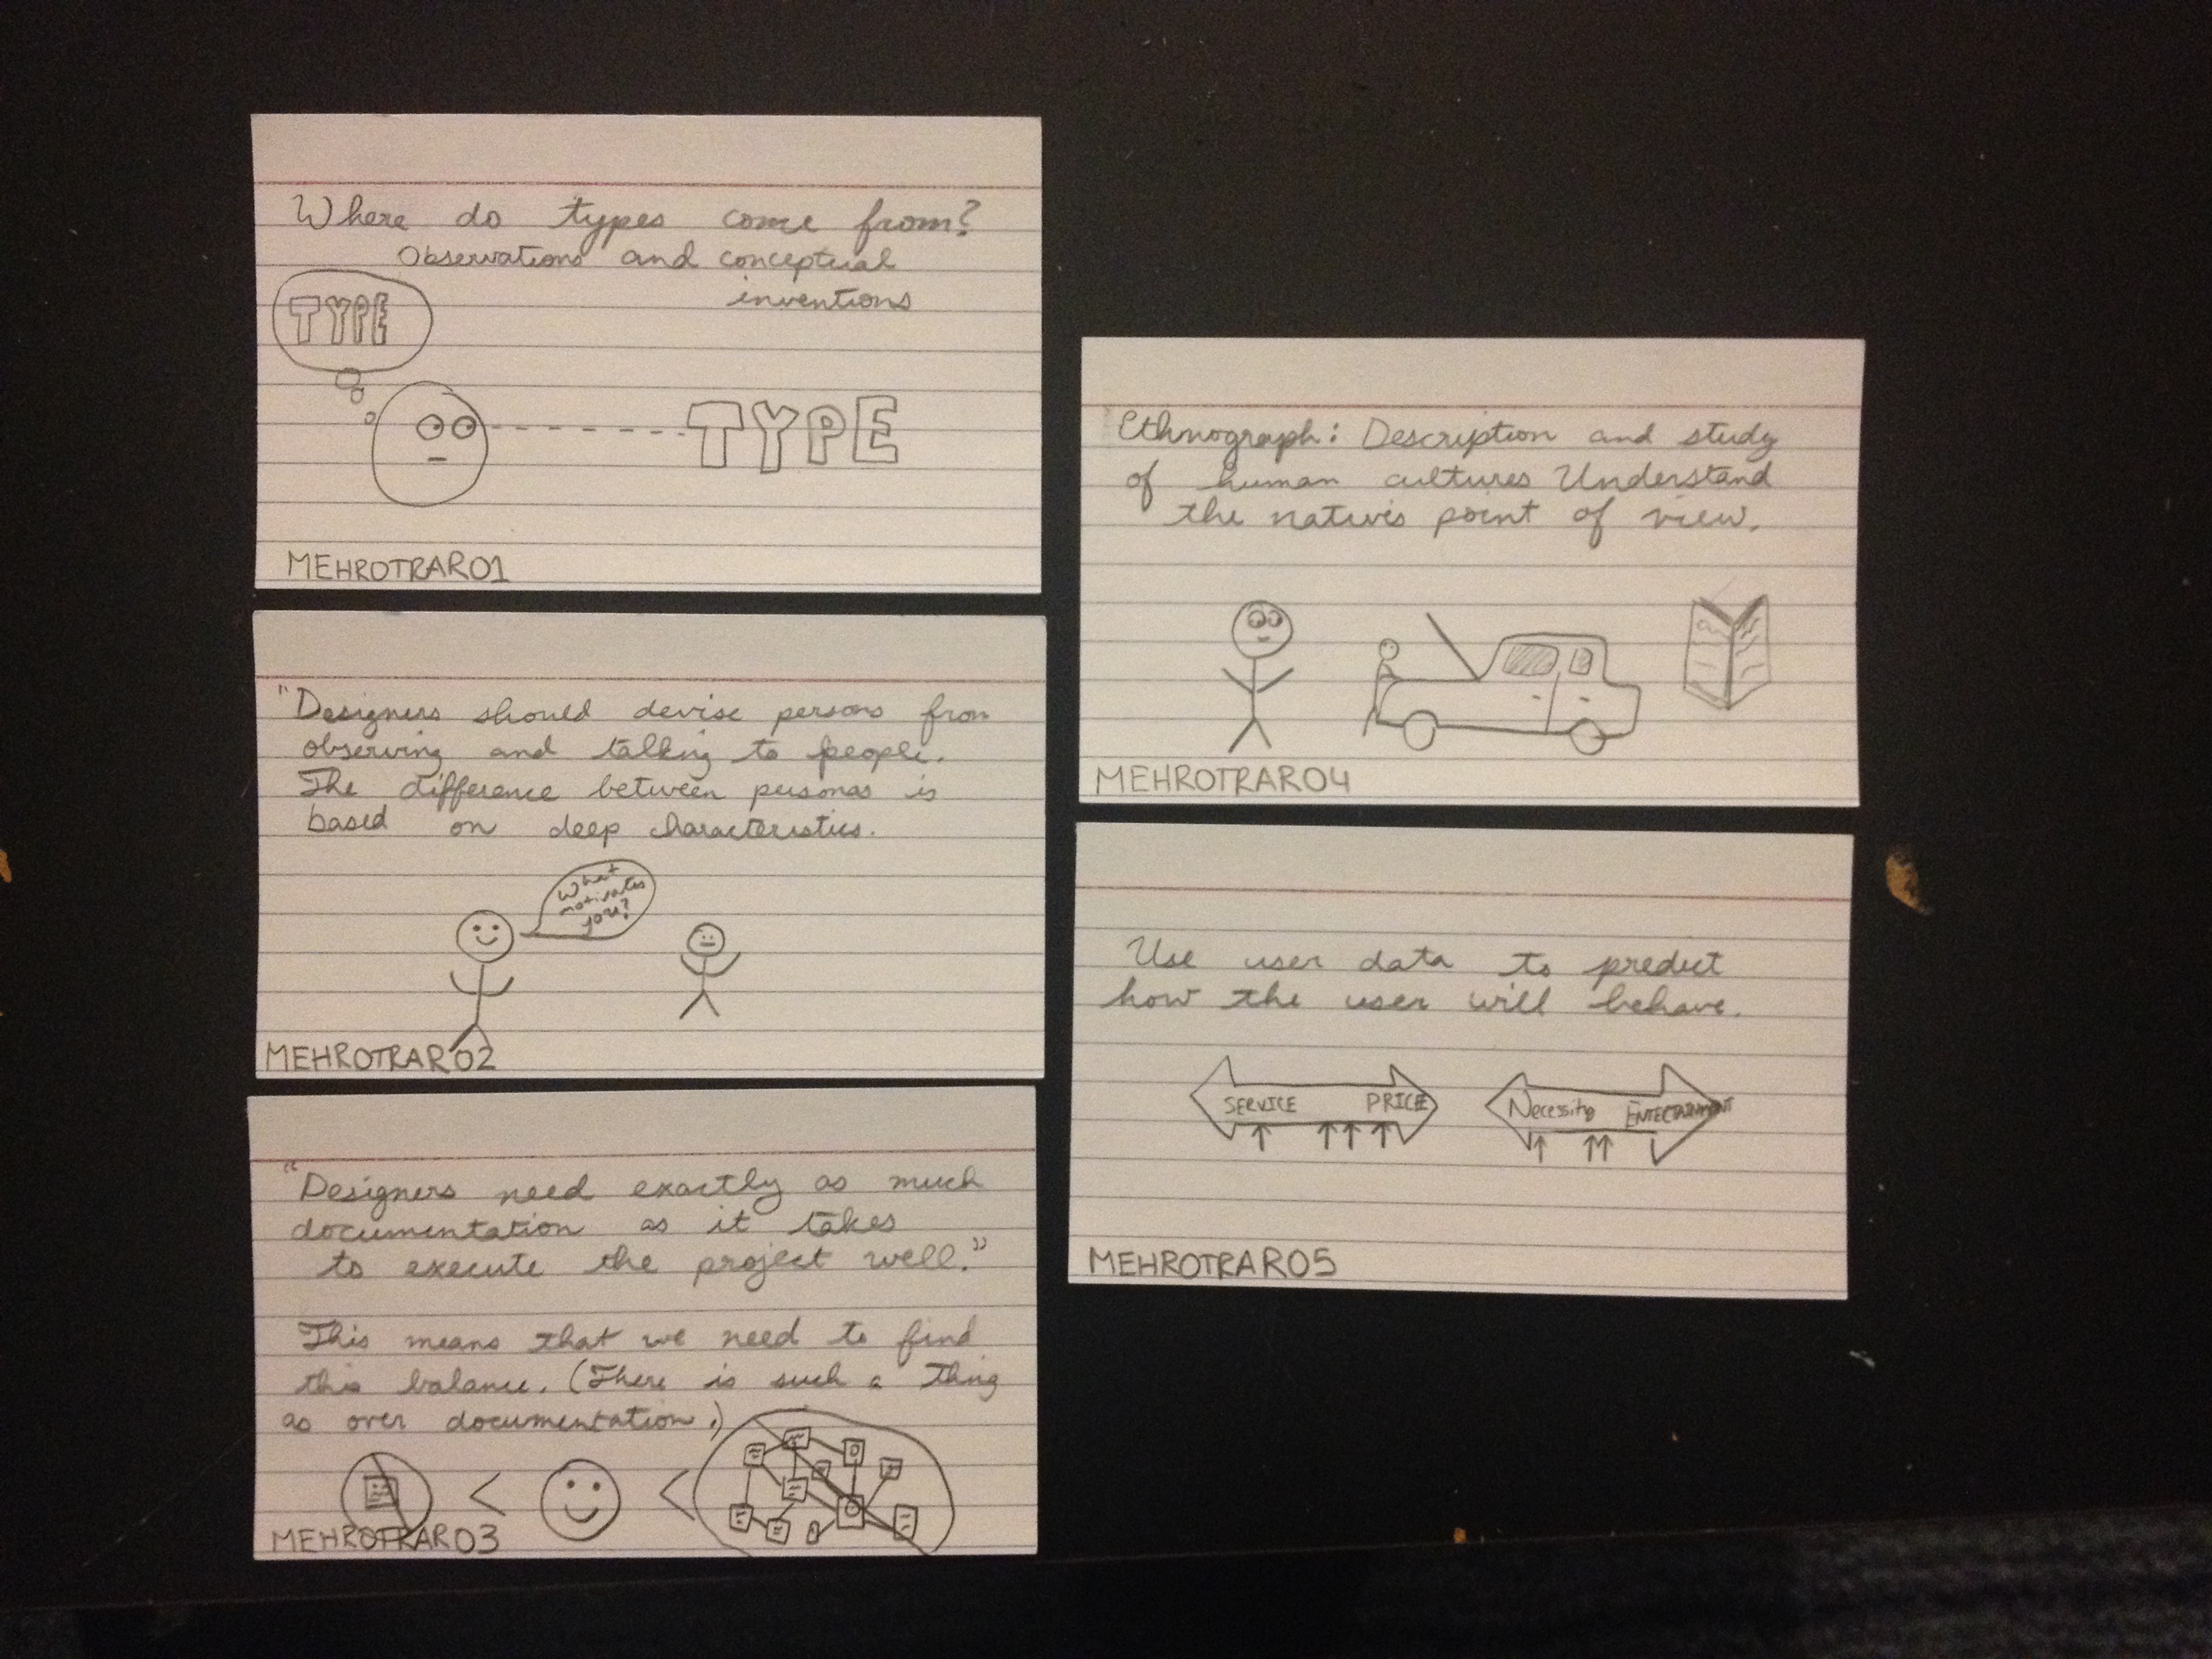 Where do types come from?
Observations and conceptual
inventions
TYPE
TYPE
MEHROTRAR01
"Designers should devise persons from
observing and talking to people.
The difference between personas is
based on deep characteristics.
What
motivates
you?
MEHROTRAR02
"Designers need exactly as much
documentation as it takes
to execute the project well."
This means that we need to find
this balance. (There is such a thing
as over documentation.)
< <
MEHROTRAR03
Ethnograph: Description and study
of human cultures Understand
the natives point of view.
MEHROTRAR04
Use user data to predict
how the user will behave.
SERVICE PRICE
Necessity
MEHROTRAR05